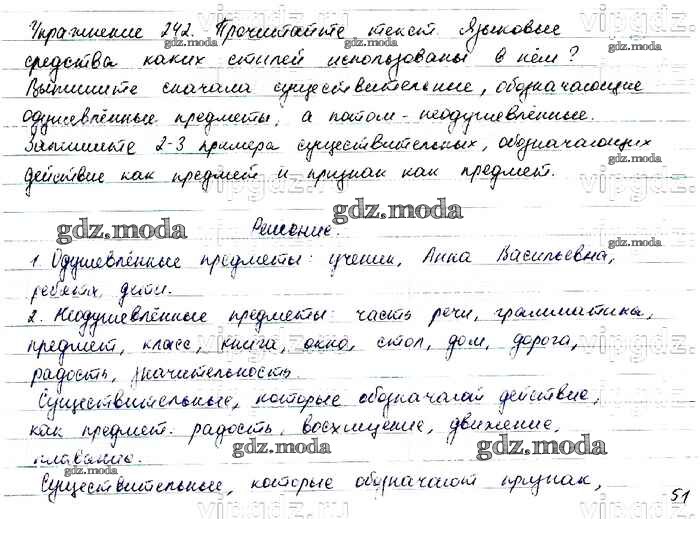 Упражнение 242. Прочитайте текст. Языковые
средства каких стилей использованы в нём?
Выпишите сначала существительные, обозначающие
одушевлённые предметы, а потом - неодушевлённые.
Запишите 2-3 примера существительных, обозначающих
действие как предмет и признак как предмет.
Решение.
1. Одушевлённые предметы: ученик, Анна Васильевна,
ребята, дети.
2. Неодушевлённые предметы: часть речи, грамматика,
предмет, класс, книга, окно, стол, дом, дорога,
радость, значительность.
Существительные, которые обозначают действие,
как предмет: радость, восхищение, движение,
плавание.
Существительные, которые обозначают признак,
51
gdz.moda
vipgdz.ru